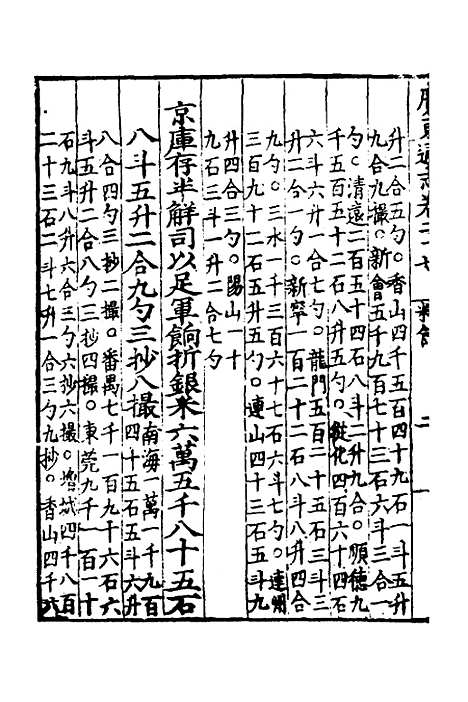 廣東通志卷二十七
二
升二合五勺。香山四千五百四十九石一斗五升
九合九撮。新會五千九百七十三石六斗三合一
勺。清遠二百五十四石八斗二升九合。順德九
千五百五十二石八升五勺。從化四百六十四石
六斗六升一合七勺。龍門五百二十五石三斗三
升二合一勺。新寧一百二十二石八斗八升四合
九勺。三水一千三百六十七石六斗七勺。連州
三百九十二石五升五勺。連山四十三石五斗九
升四合三勺。陽山一十
九石三斗一升二合七勺
京庫存半解司以足軍餉折銀米六萬五千八十五石
八斗五升二合九勺三抄八撮
南海一萬一千九百
四十五石五斗六升
八合四勺三抄二撮。番禺七千一百九十六石六
斗五升二合八勺三抄四撮。東莞九千一百一十
石九斗八升六合三勺六抄六撮。增城四千八百
二十三石二斗七升一合三勺九抄。香山四千六